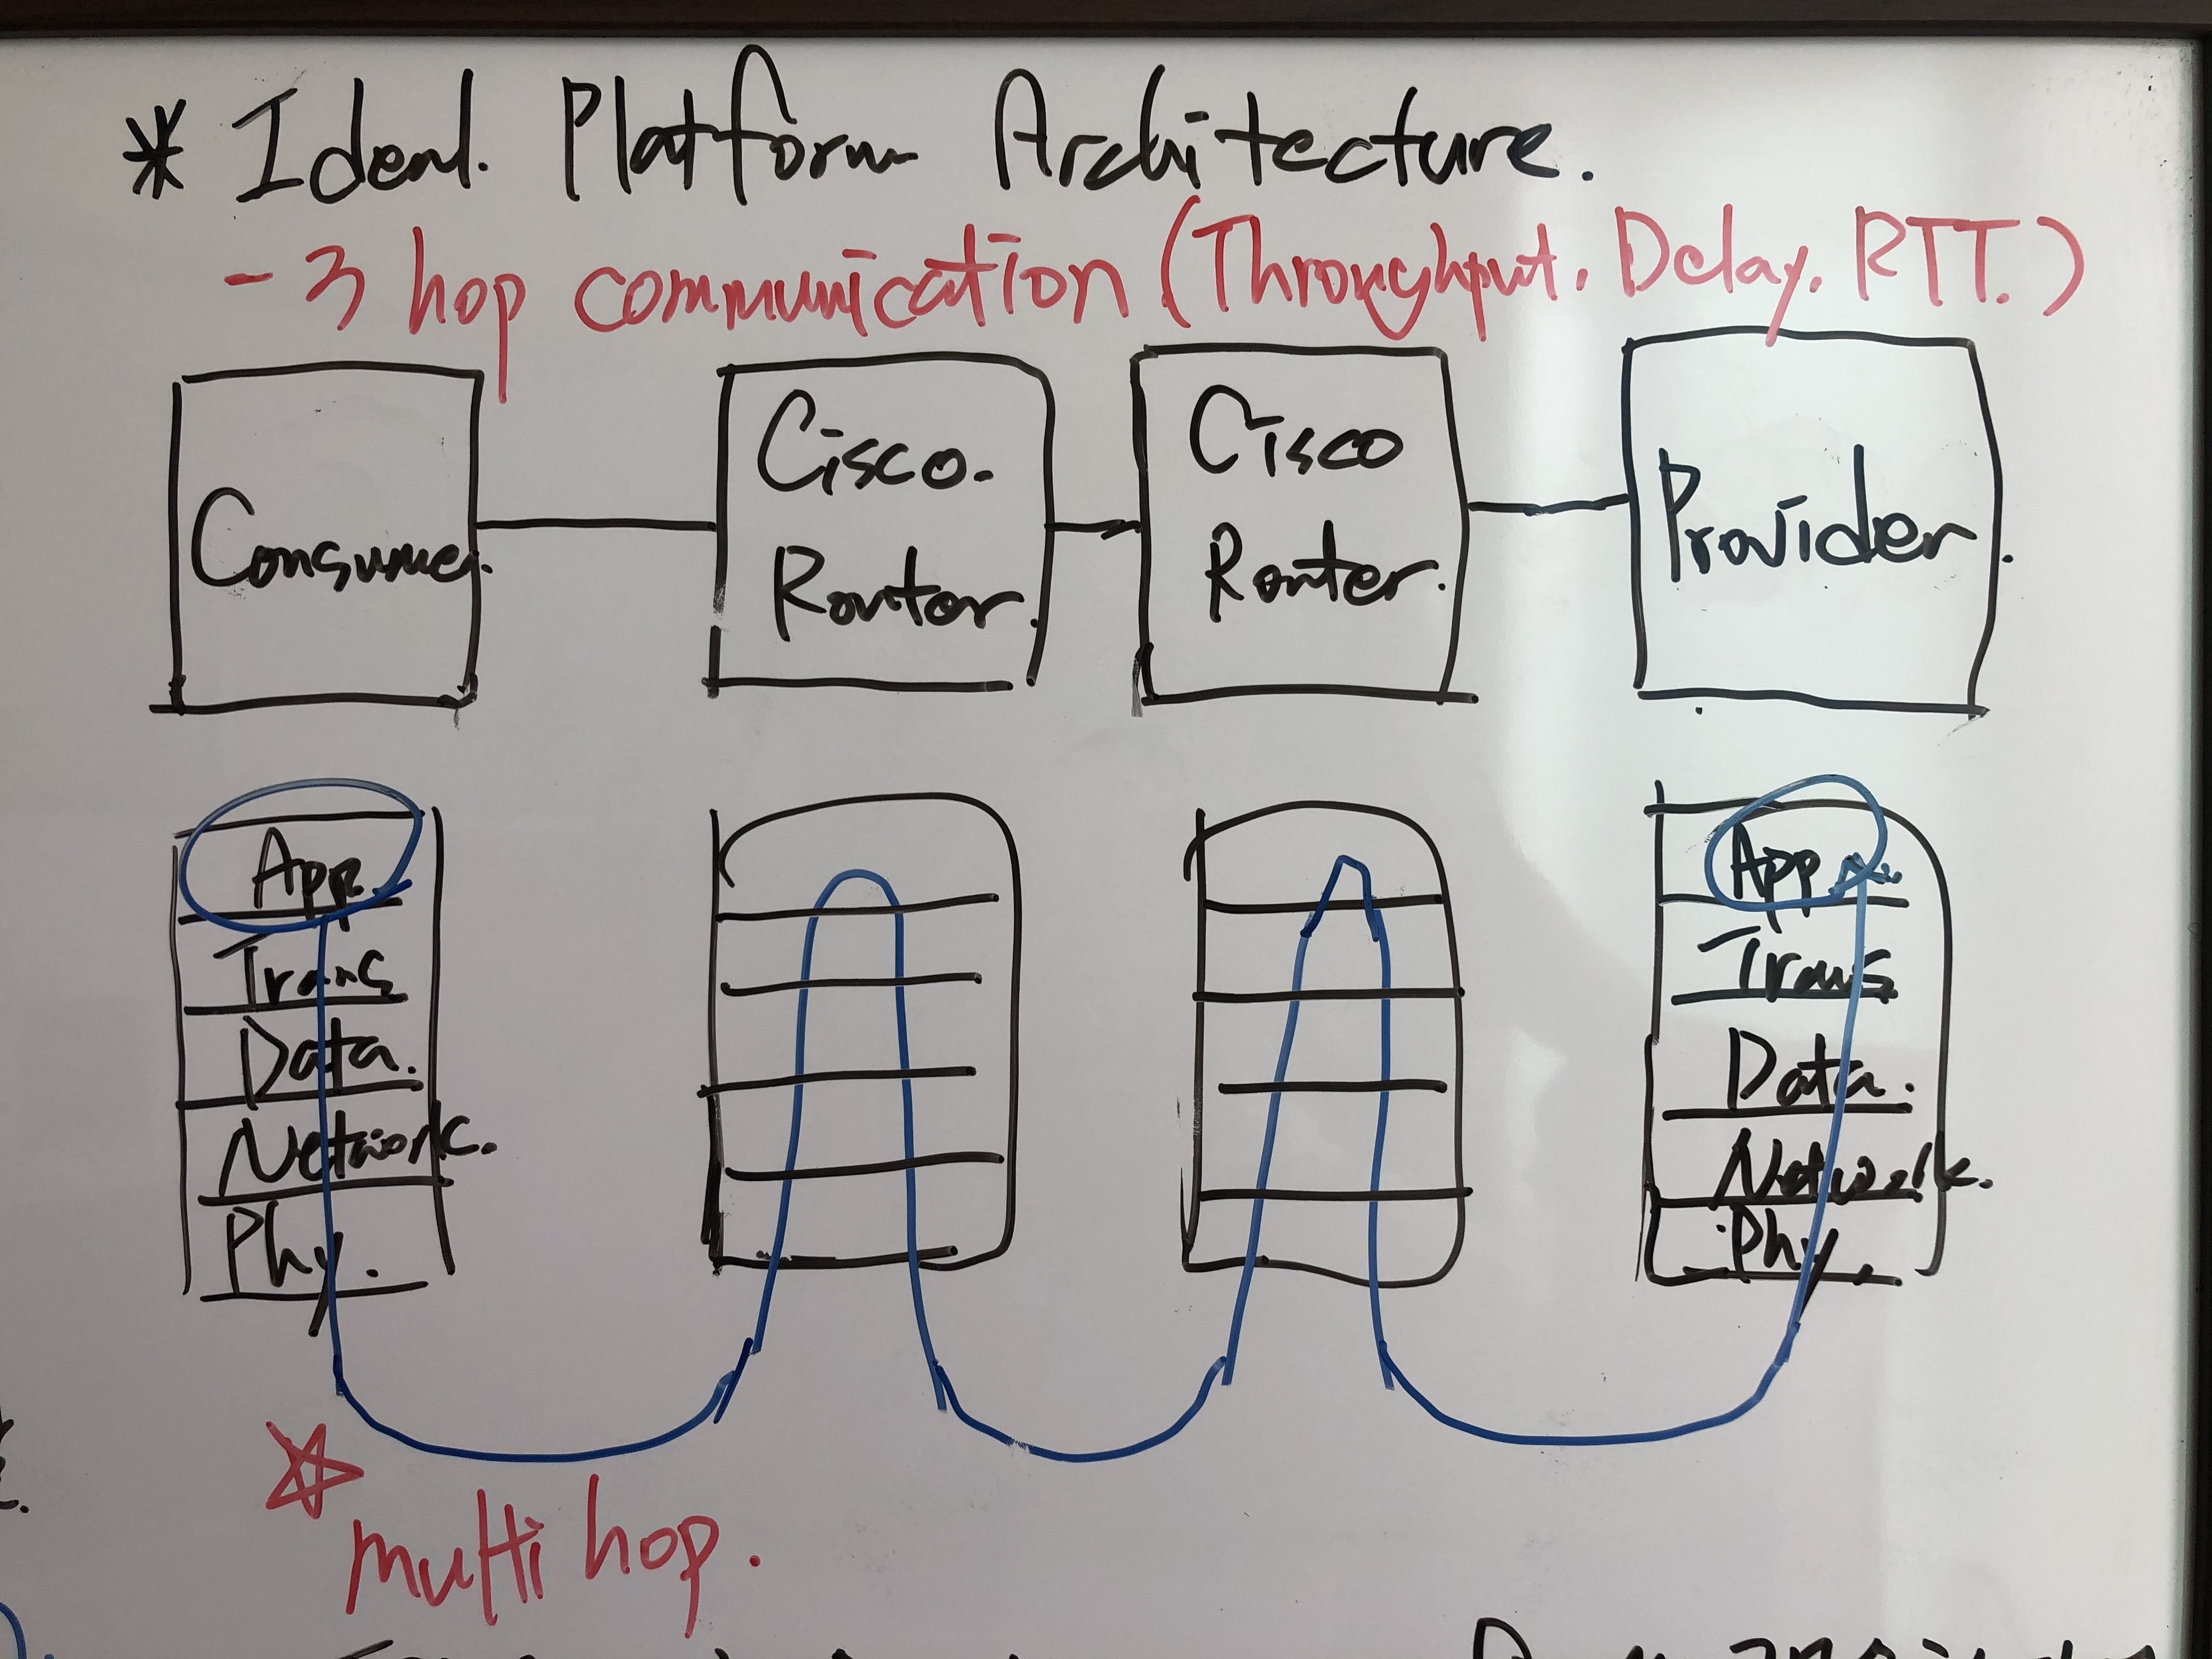 * Ideal. Platform Architecture.
- 3 hop communication (Throughput, Delay, RTT.)
Consumer.
Cisco.
Router.
Cisco
Router.
Provider.
App
Trans
Data.
Network.
Phy.
App
Trans
Data.
Network.
Phy.
☆
multi hop.